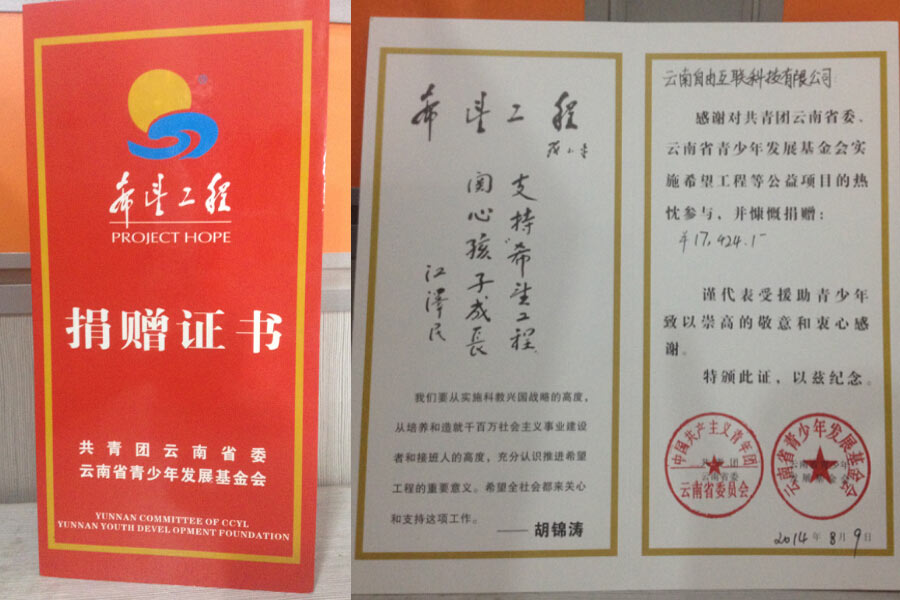 希望工程
PROJECT HOPE
捐赠证书
共青团云南省委
云南省青少年发展基金会
YUNNAN COMMITTEE OF CCYL
YUNNAN YOUTH DEVELOPMENT FOUNDATION
希望工程
支持“希望工程
关心孩子成長
江泽民
我们要从实施科教兴国战略的高度，
从培养和造就千百万社会主义事业建设
者和接班人的高度，充分认识推进希望
工程的重要意义。希望全社会都来关心
和支持这项工作。
——胡锦涛
云南自由互联科技有限公司：
感谢对共青团云南省委、
云南省青少年发展基金会实
施希望工程等公益项目的热
忱参与，并慷慨捐赠：
¥17,424.1-
谨代表受援助青少年
致以崇高的敬意和衷心感
谢。
特颁此证，以兹纪念。
中国共产主义青年团
云南省委员会
共青团
云南省委
云南省青少年发展基金会
云南省青少年
发展基金会
2014年8月9日